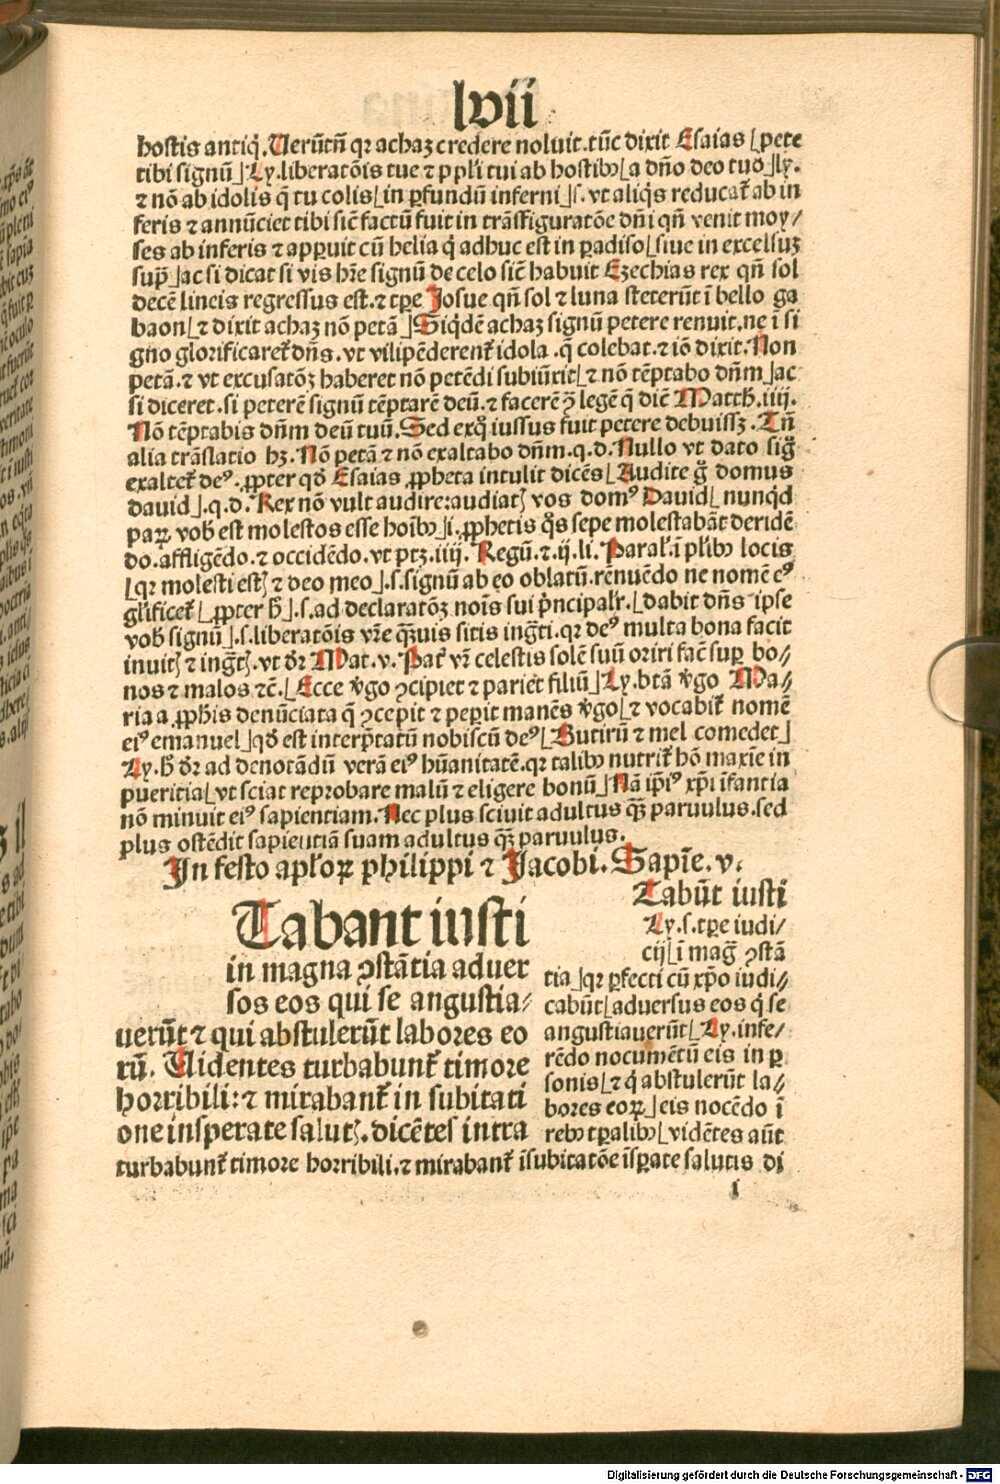 lvii
hostis antiq̓. Uerũtñ qꝛ achaz credere noluit. tũc dixit Esaias ⌊pete
tibi signũ⌋ Ly. liberatõis tue ⁊ p̱ ppl̓i tui ab hostibꝰ ⌊a dño deo tuo⌋ ly.
⁊ nõ ab idolis q̃ tu colis ⌊in ꝓfundũ inferni⌋ .s. vt aliq̓s reducat̃ ab in
feris ⁊ annũciet tibi sic̃ factũ fuit in trãsfiguratõe dñi qñ venit moy/
ses ab inferis ⁊ apꝑuit cũ helia q̓ adhuc est in ꝑadiso ⌊siue in excelsuz
supꝝ⌋ ac si dicat si vis hr̃e signũ de celo sic̃ habuit Ezechias rex qñ sol
decẽ lineis regressus est. ⁊ tꝑe Josue qñ sol ⁊ luna steterũt ĩ bello ga
baon ⌊⁊ dixit achaz nõ petã⌋ Siq̓dẽ achaz signũ petere renuit. ne ĩ si
gno glorificaret̃ dñs. vt vilipẽderent̃ idola .q̃ colebat. ⁊ iõ dixit. Non
petã. ⁊ vt excusatõz haberet nõ petẽdi subiũxit ⌊⁊ nõ tẽptabo dñm⌋ ac
si diceret. si peterẽ signũ tẽptarẽ deũ. ⁊ facerẽ ↄ̃ legẽ q̃ dic̃ Matth. iiij.
Nõ tẽptabis dñm deũ tuũ. Sed exq̊ iussus fuit petere debuissz. Tñ
alia trãslatio hz. Nõ petã ⁊ nõ exaltabo dñm. q. d. Nullo vt dato sig̊
exaltet̃ deꝰ. ꝓpter qd̓ Esaias ꝓpheta intulit dicẽs ⌊Audite g̊ domus
dauid⌋ .q. d. Rex nõ vult audire: audiatꝭ vos domꝰ Dauid ⌊nunq̓d
paꝝ vob̓ est molestos esse hoĩbꝰ⌋ i. ꝓphetis q̊s sepe molestabãt deridẽ
do. affligẽdo. ⁊ occidẽdo. vt ptz. iiij. Regũ. ⁊ .ij. li. Paral̓. ĩ pl̓ibꝰ locis
⌊qꝛ molesti estꝭ ⁊ deo meo⌋ .s. signũ ab eo oblatũ. rẽnuẽdo ne nomẽ eꝰ
gl̓ificet̃ ⌊ꝓpter h̓⌋ .s. ad declaratõz noĩs sui p̓ncipalr̓. ⌊dabit dñs ipse
vob̓ signũ⌋ .s. liberatõis vr̃e q̃zuis sitis ing̃ti. qꝛ deꝰ multa bona facit
inuitꝭ ⁊ ing̃tꝭ. vt dr̓ Mat. v. Pat̓ vr̃ celestis solẽ suũ oriri fac̃ suꝑ bo//
nos ⁊ malos ⁊c̃. ⌊Ecce v̓go ↄcipiet ⁊ pariet filiũ⌋ Ly. btã v̓go Ma//
ria a ꝓphis denũciata q̃ ↄcepit ⁊ peꝑit manẽs v̓go ⌊⁊ vocabit̃ nomẽ
eiꝰ emanuel⌋ qd̓ est interp̃tatũ nobiscũ deꝰ ⌊Butirũ ⁊ mel comedet⌋
Ly. h̓ dr̓ ad denotãdũ verã eiꝰ hũanitatẽ. qꝛ talibꝰ nutrit̃ hõ maxĩe in
pueritia ⌊vt sciat reprobare malũ ⁊ eligere bonũ⌋ Nã ip̃iꝰ xp̃i ĩfantia
nõ minuit eiꝰ sapientiam. Nec plus sciuit adultus q̃z paruulus. sed
plus ostẽdit sapientiã suam adultus q̃z paruulus.
In festo apl̓oꝝ philippi ⁊ Jacobi. Sapiẽ. v.
Tabant iusti
in magna ↄstãtia aduer
sos eos qui se angustia/
uerũt ⁊ qui abstulerũt labores eo
rũ. Uidentes turbabunt̃ timore
horribili: ⁊ mirabant̃ in subitati
one insperate salutꝭ. dicẽtes intra
Tabũt iusti
Ly. s. tꝑe iudi/
cij ⌊ĩ mag̃ ↄstã
tia⌋ qꝛ ꝑfecti cũ xp̃o iudi//
cabũt ⌊aduersus eos q̓ se
angustiauerũt⌊ Ly. infe/
rẽdo nocumẽtũ eis in ꝑ
sonis ⌊⁊ q̓ abstulerũt la//
bores eoꝝ⌋ eis nocẽdo ĩ
rebꝰ tꝑalibꝰ ⌊vidẽtes aũt
turbabunt̃ timore horribili. ⁊ mirabant̃ ĩ subitatõe ĩsꝑate salutis di
l
Digitalisierung gefördert durch die Deutsche Forschungsgemeinschaft - DFG